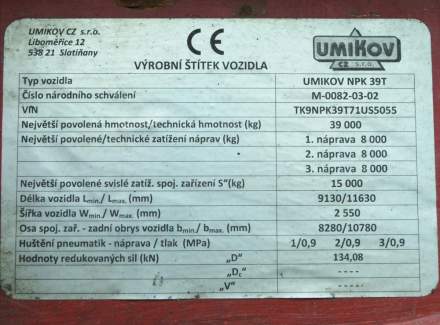 UMIKOV CZ s.r.o.
Liboměřice 12
538 21 Slatiňany
CE
UMIKOV
CZ s.r.o.
VÝROBNÍ ŠTÍTEK VOZIDLA
Typ vozidla UMIKOV NPK 39T
Číslo národního schválení M-0082-03-02
VIN TK9NPK39T71US5055
Největší povolená hmotnost/technická hmotnost (kg) 39 000
Největší povolené/technické zatížení náprav (kg) 1. náprava 8 000
2. náprava 8 000
3. náprava 8 000
Největší povolené svislé zatíž. spoj. zařízení S"(kg) 15 000
Délka vozidla Lmin./ Lmax. (mm) 9130/11630
Šířka vozidla Wmin./ Wmax. (mm) 2 550
Osa spoj. zař. - zadní obrys vozidla bmin./ bmax. (mm) 8280/10780
Huštění pneumatik - náprava / tlak (MPa) 1/0,9 2/0,9 3/0,9
Hodnoty redukovaných sil (kN) „D" 134,08
„Dc" ----
„V" ----